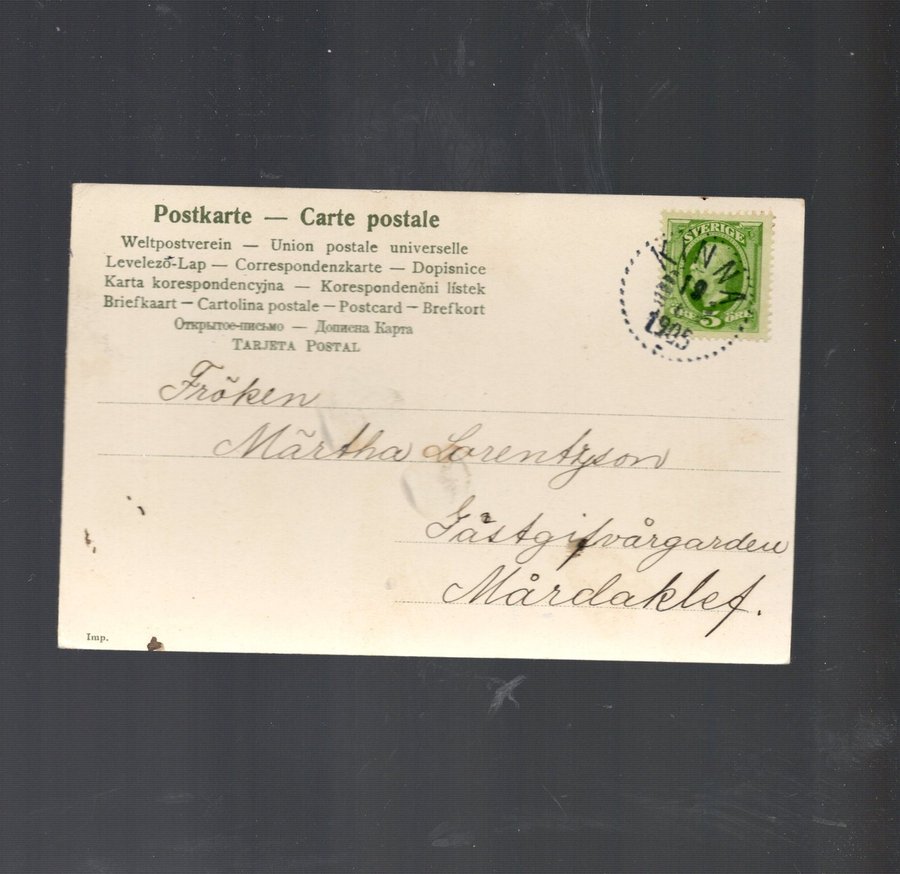 Postkarte — Carte postale
Weltpostverein — Union postale universelle
Levelező-Lap — Correspondenzkarte — Dopisnice
Karta korespondencyjna — Korespondenční lístek
Briefkaart — Cartolina postale — Postcard — Brefkort
Открытое-письмо — Дописна Карта
TARJETA POSTAL
SVERIGE
KINNA
19
1905
5 ÖRE
Fröken
Märtha Lorentzson
Gästgifvårgarden
Mårdaklef.
Imp.